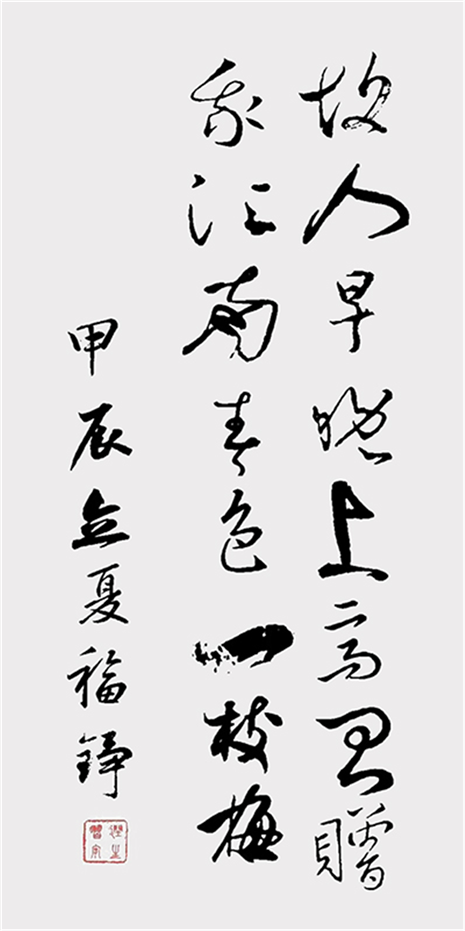 故人早晚上高台贈
我江南春色一枝梅
甲辰立夏福錚